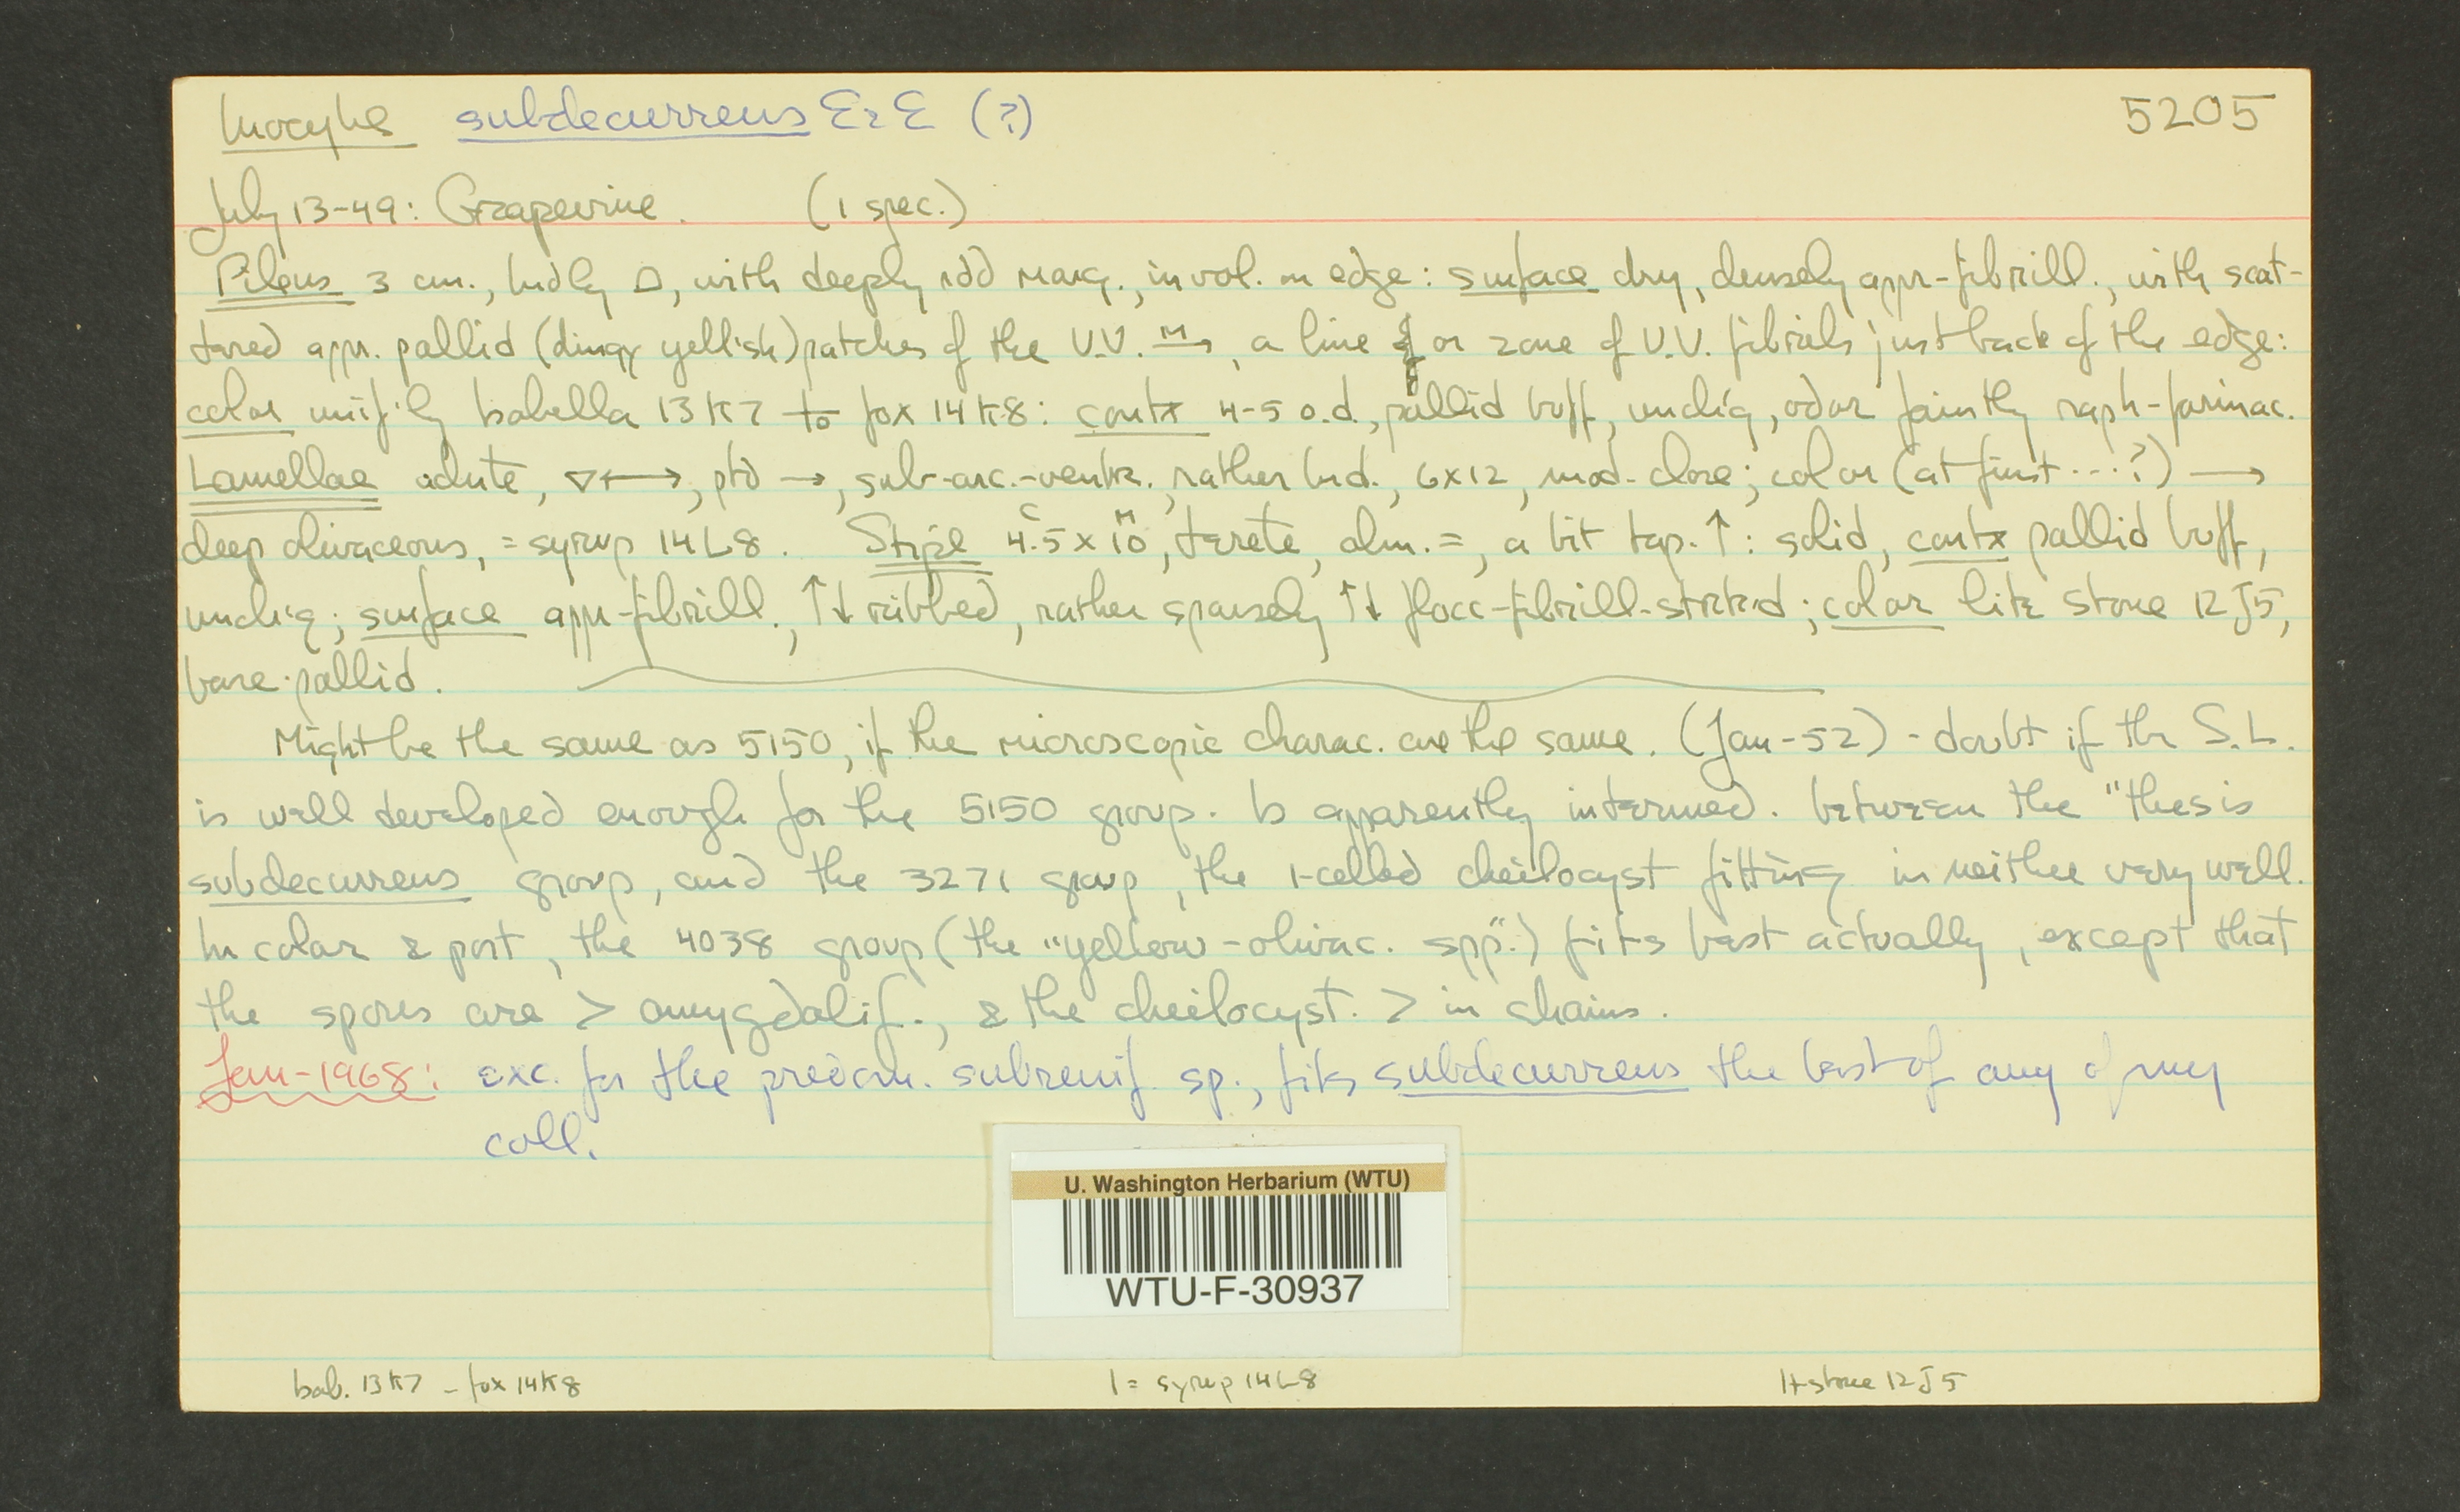 Inocybe subdecurrens E & E (?) 5205
July 13-49: Grapevine. (1 spec.)
Pileus 3 cm., brdly △, with deeply rdd marg., invol. on edge: surface dry, densely appr-fibrill., with scat-
tered appr. pallid (dingy yellish) patches of the U.V. M→, a line or zone of U.V. fibrils just back of the edge:
color unif'ly Isabella 13K7 to fox 14K8: contx 4-5 o.d., pallid buff, unchg, odor faintly raph-farinac.
Lamellae adnate, ▽←→, ptd →, sub-arc.-ventr., rather brd., 6x12, mod. close; color (at first ...?) →
deep olivaceous, = syrup 14L8. Stipe 4.5 x 10, terete, alm. =, a bit tap. ↑: solid, contx pallid buff,
unch'g; surface appr-fibrill., ↑↓ ribbed, rather sparsely ↑↓ flocc-fibrill-strktd; color lite stone 12J5,
base pallid.
Might be the same as 5150, if the microscopic charac. are the same. (Jan-52) - doubt if the S.L.
is well developed enough for the 5150 group. Is apparently intermed. between the "thesis
subdecurrens group, and the 3271 group, the 1-celled cheilocyst fitting in neither very well.
In color & port, the 4038 group (the "yellow-olivac. spp.") fits best actually, except that
the spores are > amygdalif., & the cheilocyst. > in chains.
Jan-1968: exc. for the predom. subrenif. sp., fits subdecurrens the best of any of my
coll.
U. Washington Herbarium (WTU)
WTU-F-30937
Isab. 13K7 - fox 14K8 l = syrup 14L8 lt stone 12J5